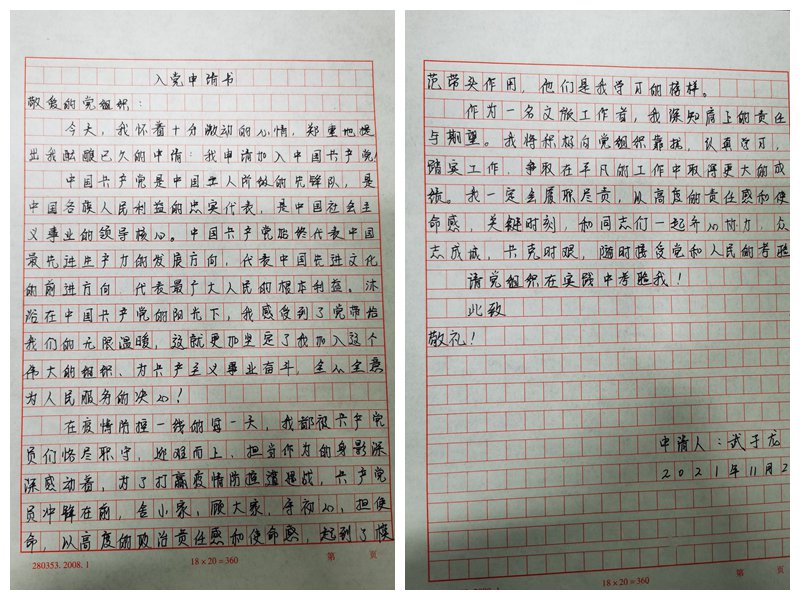 入党申请书
敬爱的党组织：
今天，我怀着十分激动的心情，郑重地提
出我酝酿已久的申请：我申请加入中国共产党！
中国共产党是中国工人阶级的先锋队，是
中国各族人民利益的忠实代表，是中国社会主
义事业的领导核心。中国共产党始终代表中国
最先进生产力的发展方向，代表中国先进文化
的前进方向，代表最广大人民的根本利益。沐
浴在中国共产党的阳光下，我感受到了党带给
我们的无限温暖，这就更加坚定了我加入这个
伟大的组织、为共产主义事业奋斗，全心全意
为人民服务的决心！
在疫情防控一线的每一天，我都被共产党
员们恪尽职守，迎难而上，担当作为的身影深
深感动着，为了打赢疫情防控遭遇战，共产党
员冲锋在前，舍小家，顾大家，守初心，担使
命，以高度的政治责任感和使命感，起到了模
280353.2008.1
18×20=360
第 页
范带头作用，他们是我学习的榜样。
作为一名文旅工作者，我深知肩上的责任
与期望。我将积极向党组织靠拢，认真学习，
踏实工作，争取在平凡的工作中取得更大的成
绩。我一定会履职尽责，以高度的责任感和使
命感，关键时刻，和同志们一起齐心协力，众
志成城，共克时艰，随时接受党和人民的考验
请党组织在实践中考验我！
此致
敬礼！
申请人：武于龙
2021年11月2
18×20=360
第 页